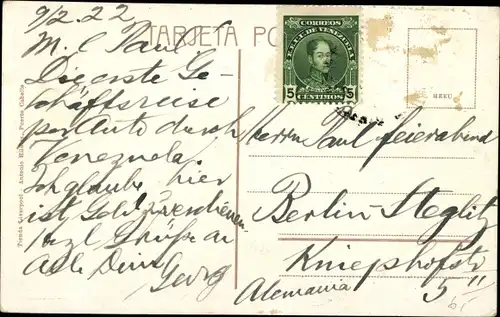 9/2.22
M. l. Paul!
Die erste Ge-
schäftsreise
per Auto durch
Venezuela.
Ich glaube, hier
ist Geld zu verdienen.
Herzl. Grüße an
alle Dein
Georg
TARJETA PO
CORREOS
E.E.U.U. DE VENEZUELA
5 CENTIMOS 5
Herrn Paul Feierabend
Berlin-Steglitz
Kniephofstr
5 II
Alemania
Tienda Liverpool - Antonio - Puerto Cabello